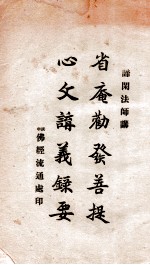 諦閑法師講
省庵勸發菩提
心文講義錄要
佛經流通處印